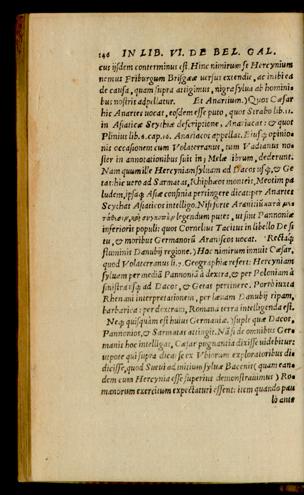 146 IN LIB. VI. DE BEL. GAL.
cus ijsdem conterminus est. Hinc nimirum se Hercynium
nemus Friburgum Brisgaæ uersus extendit, ac inibi ea
de causa, quam supra attigimus, nigra sylua ab homini
bus nostris adpellatur. Et Anartium.) Quos Cæsar
hic Anartes uocat, eosdem esse puto, quos Strabo lib. 11.
in Asiaticæ Scythiæ descriptione, Anariacas: & quos
Plinius lib. 6. cap. 16. Anariacos appellat. Eiusq; opinio
nis occasionem cum Volaterranus, tum Vadianus no
ster in annotationibus suit in Melæ librum, dederunt.
Nam quum ille Hercyniam syluam ad Dacos usq;, & Ge
tas: hic uero ad Sarmatas, Riphæos montes, Meotim pa
ludem, ipsaq; Asiæ confinia pertingere dicat: per Anartes
Scythas Asiaticos intelligo. Nisi forte
legendum putes, ut sint Pannoniæ
inferioris populi: quos Cornelius Tacitus in libello De si
tu, & moribus Germanorū Arauiscos uocat. Rectaq;
fluminis Danubij regione.) Hoc nimirum innuit Cæsar,
quod Volaterranus li. 7. Geographiæ refert: Hercyniam
syluam per mediā Pannoniā à dextra, & per Poloniam à
sinistra usq; ad Dacos, & Getas pertinere. Porrò iuxta
Rhenani interpretationem, per læuam Danubij ripam,
barbarica: per dextram, Romana terra intelligenda est.
Neq; quisquam est huius Germaniæ.) supple quæ Dacos,
Pannonios, & Sarmatas attingit. Nā si de omnibus Ger
manis hoc intelligas, Cæsar pugnantia dixisse uidebitur:
utpote qui supra dicat se ex Vbiorum exploratoribus di
dicisse, quod Sueui ad initium syluæ Bacenis (quam ean
dem cum Hercynia esse superius demonstrauimus) Ro
manorum exercitum expectaturi essent: item quando pau
lò ante